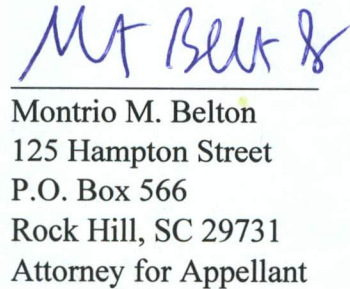 Montrio M. Belton
125 Hampton Street
P.O. Box 566
Rock Hill, SC 29731
Attorney for Appellant